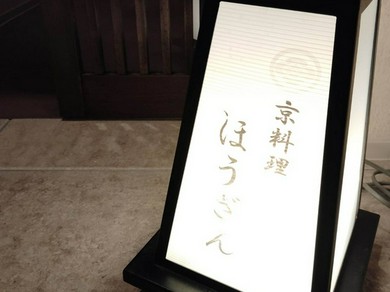 京料理
ほうぎん